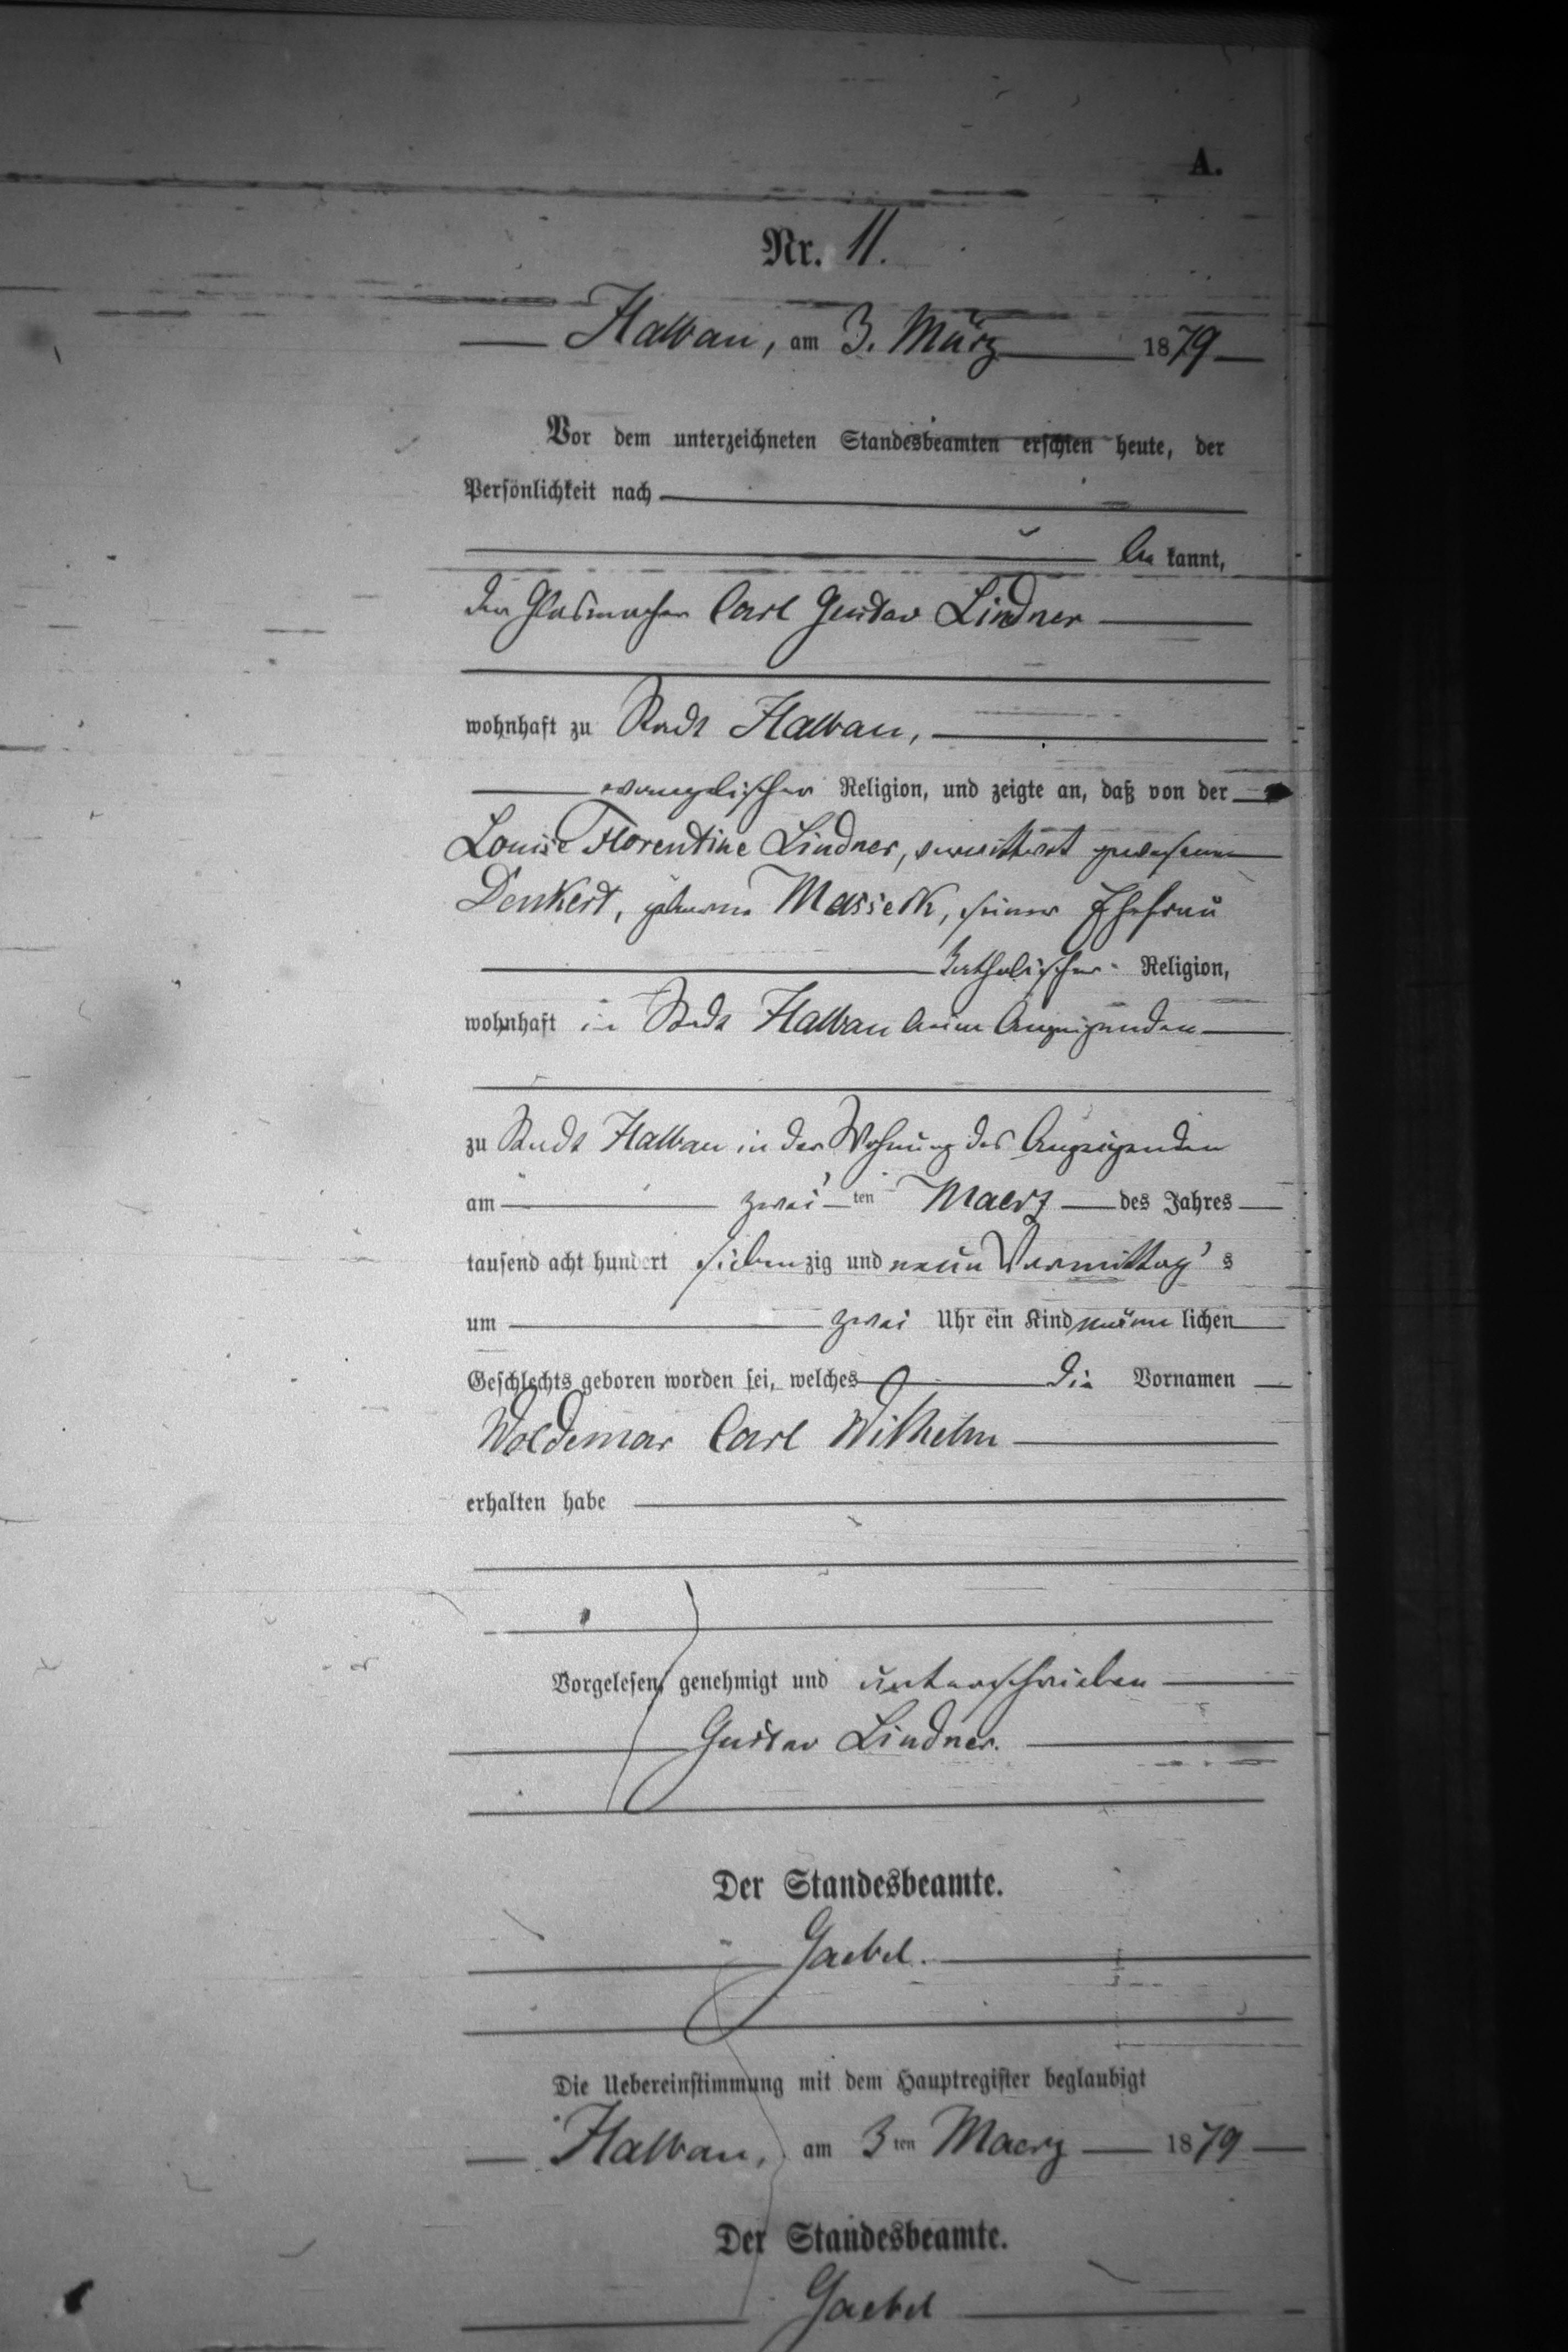 A.
Nr. 11.
Halbau, am 3. März 1879
Vor dem unterzeichneten Standesbeamten erschien heute, der
Persönlichkeit nach
be kannt,
der Glasmacher Carl Gustav Lindner
wohnhaft zu Stadt Halbau,
evangelischer Religion, und zeigte an, daß von der
Louise Florentine Lindner, verwittwet gewesenen
Denkert, geborene Massek, seiner Ehefrau
katholischer Religion,
wohnhaft in Stadt Halbau beim Anzeigenden
zu Stadt Halbau in der Wohnung des Anzeigenden
am zwei ten Maerz des Jahres
tausend acht hundert sieben zig und neun Vormittag s
um zwei Uhr ein Kind männ lichen
Geschlechts geboren worden sei, welches die Vornamen
Woldemar Carl Wilhelm
erhalten habe
Vorgelesen, genehmigt und unterschrieben
Gustav Lindner.
Der Standesbeamte.
Gaebel.
Die Uebereinstimmung mit dem Hauptregister beglaubigt
Halbau, am 3ten Maerz 1879
Der Standesbeamte.
Gaebel